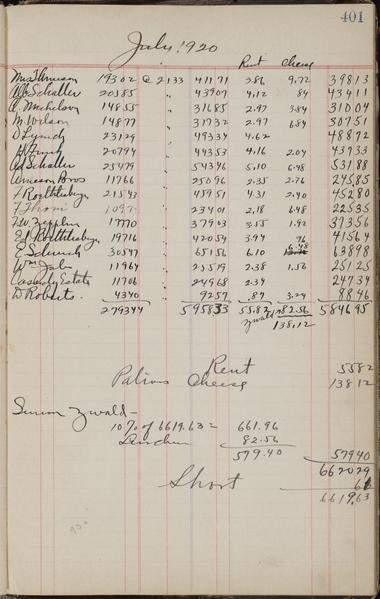 401
July 1920
Rent Cheese
Mrs Arneson 19302 @ 2133 41171 3.86 9.72 39813
Schaller 20585 " 43907 4.12 84 43411
A. Michelson 14855 " 31685 2.97 3.84 31004
M. Wilson 14877 " 31732 2.97 6.84 30751
D Lynch 23129 " 49334 4.62 48872
20794 " 44353 4.16 2.04 43733
Schaller 25479 " 54346 5.10 6.48 53188
Arneson Bros 11766 " 25096 2.35 2.76 245,85
F Roethlisberger 21543 " 45951 4.31 2.40 45280
F Thoni 1097 " 23401 2.18 6.48 22535
17770 " 37903 3.55 1.92 37356
Ed Roethlisberger 19716 " 42054 3.94 76 41564
E Schenck 30547 " 65156 6.10 6.48 63898
Wm Jahn 11964 " 25519 2.38 1.56 25125
Casserly Estate 11706 " 24968 2.34 24734
D Roberts 4340 9257 .87 3.24 8846
279344 595833 55.82 82.56 584695
Zwald
138.12
Rent 5582
Patrons Cheese 13812
Simon Zwald -
10% of 6619.63 = 661.96
82.56
579.40 57940
662029
Short 66
6619,63